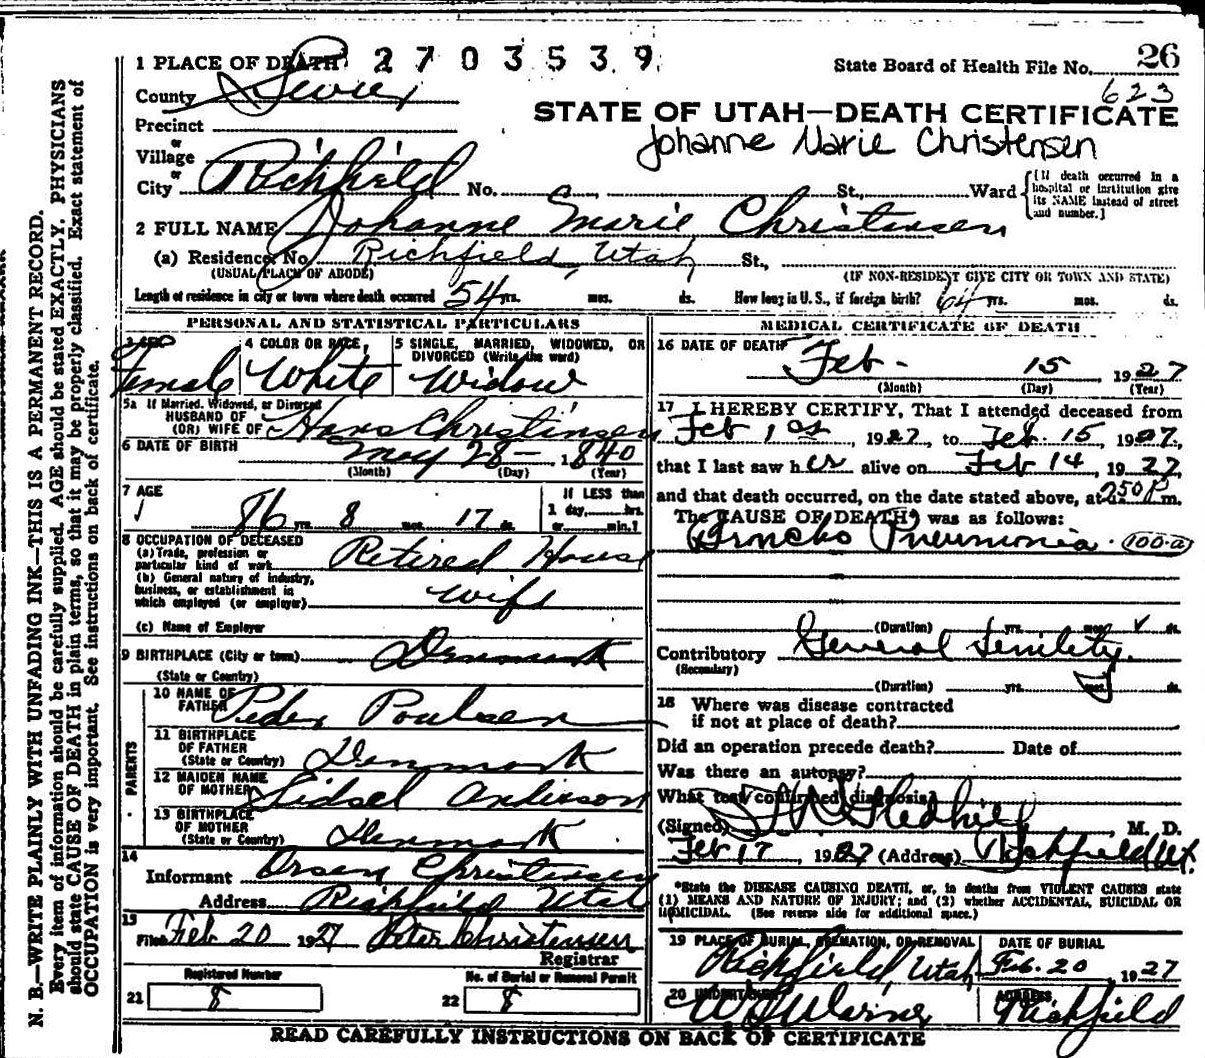 1 PLACE OF DEATH 2 7 0 3 5 3 9
State Board of Health File No. 26
623
County Sevier
STATE OF UTAH—DEATH CERTIFICATE
Precinct
Johanne Marie Christensen
or
Village
or
City Richfield No. St., Ward
[If death occurred in a
hospital or institution give
its NAME instead of street
and number.]
2 FULL NAME Johanne Marie Christensen
(a) Residence, No. Richfield, Utah St.,
(USUAL PLACE OF ABODE) (IF NON-RESIDENT GIVE CITY OR TOWN AND STATE)
Length of residence in city or town where death occurred 54 yrs. mos. ds. How long in U. S., if foreign birth? 64 yrs. mos. ds.
PERSONAL AND STATISTICAL PARTICULARS
3 SEX 4 COLOR OR RACE, 5 SINGLE, MARRIED, WIDOWED, OR
DIVORCED (Write the word)
Female White Widow
5a If Married, Widowed, or Divorced
HUSBAND OF
(OR) WIFE OF Hans Christensen
6 DATE OF BIRTH May 28 - 1840
(Month) (Day) (Year)
7 AGE
If LESS than
1 day, hrs.
86 yrs. 8 mos. 17 ds. or min.?
8 OCCUPATION OF DECEASED
(a) Trade, profession or
particular kind of work Retired House
(b) General nature of industry,
business, or establishment in
which employed (or employer) wife
(c) Name of Employer
9 BIRTHPLACE (City or town) Denmark
(State or Country)
PARENTS
10 NAME OF
FATHER Peder Poulsen
11 BIRTHPLACE
OF FATHER
(State or Country) Denmark
12 MAIDEN NAME
OF MOTHER Sidsel Anderson
13 BIRTHPLACE
OF MOTHER
(State or Country) Denmark
14
Informant Orson Christensen
Address Richfield Utah
15
Filed Feb 20 1927 Peter Christensen
Registrar
Registered Number No. of Burial or Removal Permit
21 8 22 8
MEDICAL CERTIFICATE OF DEATH
16 DATE OF DEATH Feb - 15 1927
(Month) (Day) (Year)
17 I HEREBY CERTIFY, That I attended deceased from
Feb 1st, 1927, to Feb. 15, 1927,
that I last saw her alive on Feb 14, 1927,
and that death occurred, on the date stated above, at 250 P m.
The CAUSE OF DEATH* was as follows:
Broncho Pneumonia. 100-a
(Duration) yrs. mos. ds.
Contributory General Senility.
(Secondary)
(Duration) yrs. mos. ds.
18 Where was disease contracted
if not at place of death?
Did an operation precede death? Date of
Was there an autopsy?
What test confirmed diagnosis?
(Signed) Gledhill, M. D.
Feb 17, 1927 (Address) Richfield Ut.
*State the DISEASE CAUSING DEATH, or, in deaths from VIOLENT CAUSES state
(1) MEANS AND NATURE OF INJURY; and (2) whether ACCIDENTAL, SUICIDAL OR
HOMICIDAL. (See reverse side for additional space.)
19 PLACE OF BURIAL, CREMATION, OR REMOVAL DATE OF BURIAL
Richfield, Utah Feb. 20 1927
20 UNDERTAKER ADDRESS
Richfield
READ CAREFULLY INSTRUCTIONS ON BACK OF CERTIFICATE
N. B.—WRITE PLAINLY WITH UNFADING INK—THIS IS A PERMANENT RECORD.
Every item of information should be carefully supplied. AGE should be stated EXACTLY. PHYSICIANS
should state CAUSE OF DEATH in plain terms, so that it may be properly classified. Exact statement of
OCCUPATION is very important. See instructions on back of certificate.